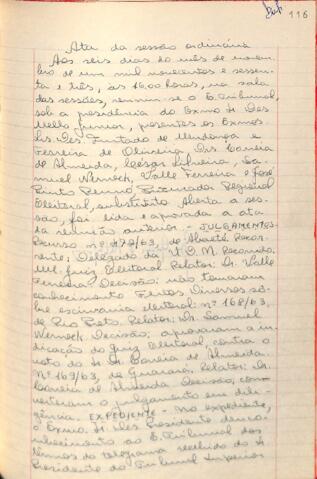 116
Ata da sessão ordinária
Aos seis dias do mês de novem-
bro de um mil novecentos e sessen-
ta e três, às 16,00 horas, na sala
das sessões, reuniu-se o E. Tribunal,
sob a presidência do Exmo Sr. Des.
Mello Junior, presentes os Exmos
Srs. Des. Furtado de Mendonça e
Ferreira de Oliveira, Drs. Correia
de Almeida, Cesar Silveira, Sa-
muel Werneck, Valle Ferreira e José
Pinto Renno, Procurador Regional
Eleitoral, substituto. Aberta a ses-
são, foi lida e aprovada a ata
da reunião anterior. - JULGAMENTOS -
Recurso nº 479/63, de Abaeté. Recor-
rente: Delegado da U.D.N. Recorrido:
MM. Juiz Eleitoral. Relator: Dr. Valle
Ferreira. Decisão: não tomaram
conhecimento. Feitos Diversos so-
bre escrivania eleitoral: nº 168/63,
de Rio Preto. Relator: Dr. Samuel
Werneck. Decisão: aprovaram a in-
dicação do Juiz Eleitoral, contra o
voto do Dr. Correia de Almeida.
Nº 169/63, de Guarará. Relator: Dr.
Correia de Almeida. Decisão: con-
verteram o julgamento em dili-
gência. EXPEDIENTE - No expediente,
o Exmo. Sr. Des. Presidente deu co-
nhecimento ao E. Tribunal dos
termos do telegrama recebido do Sr.
Presidente do Tribunal Superior